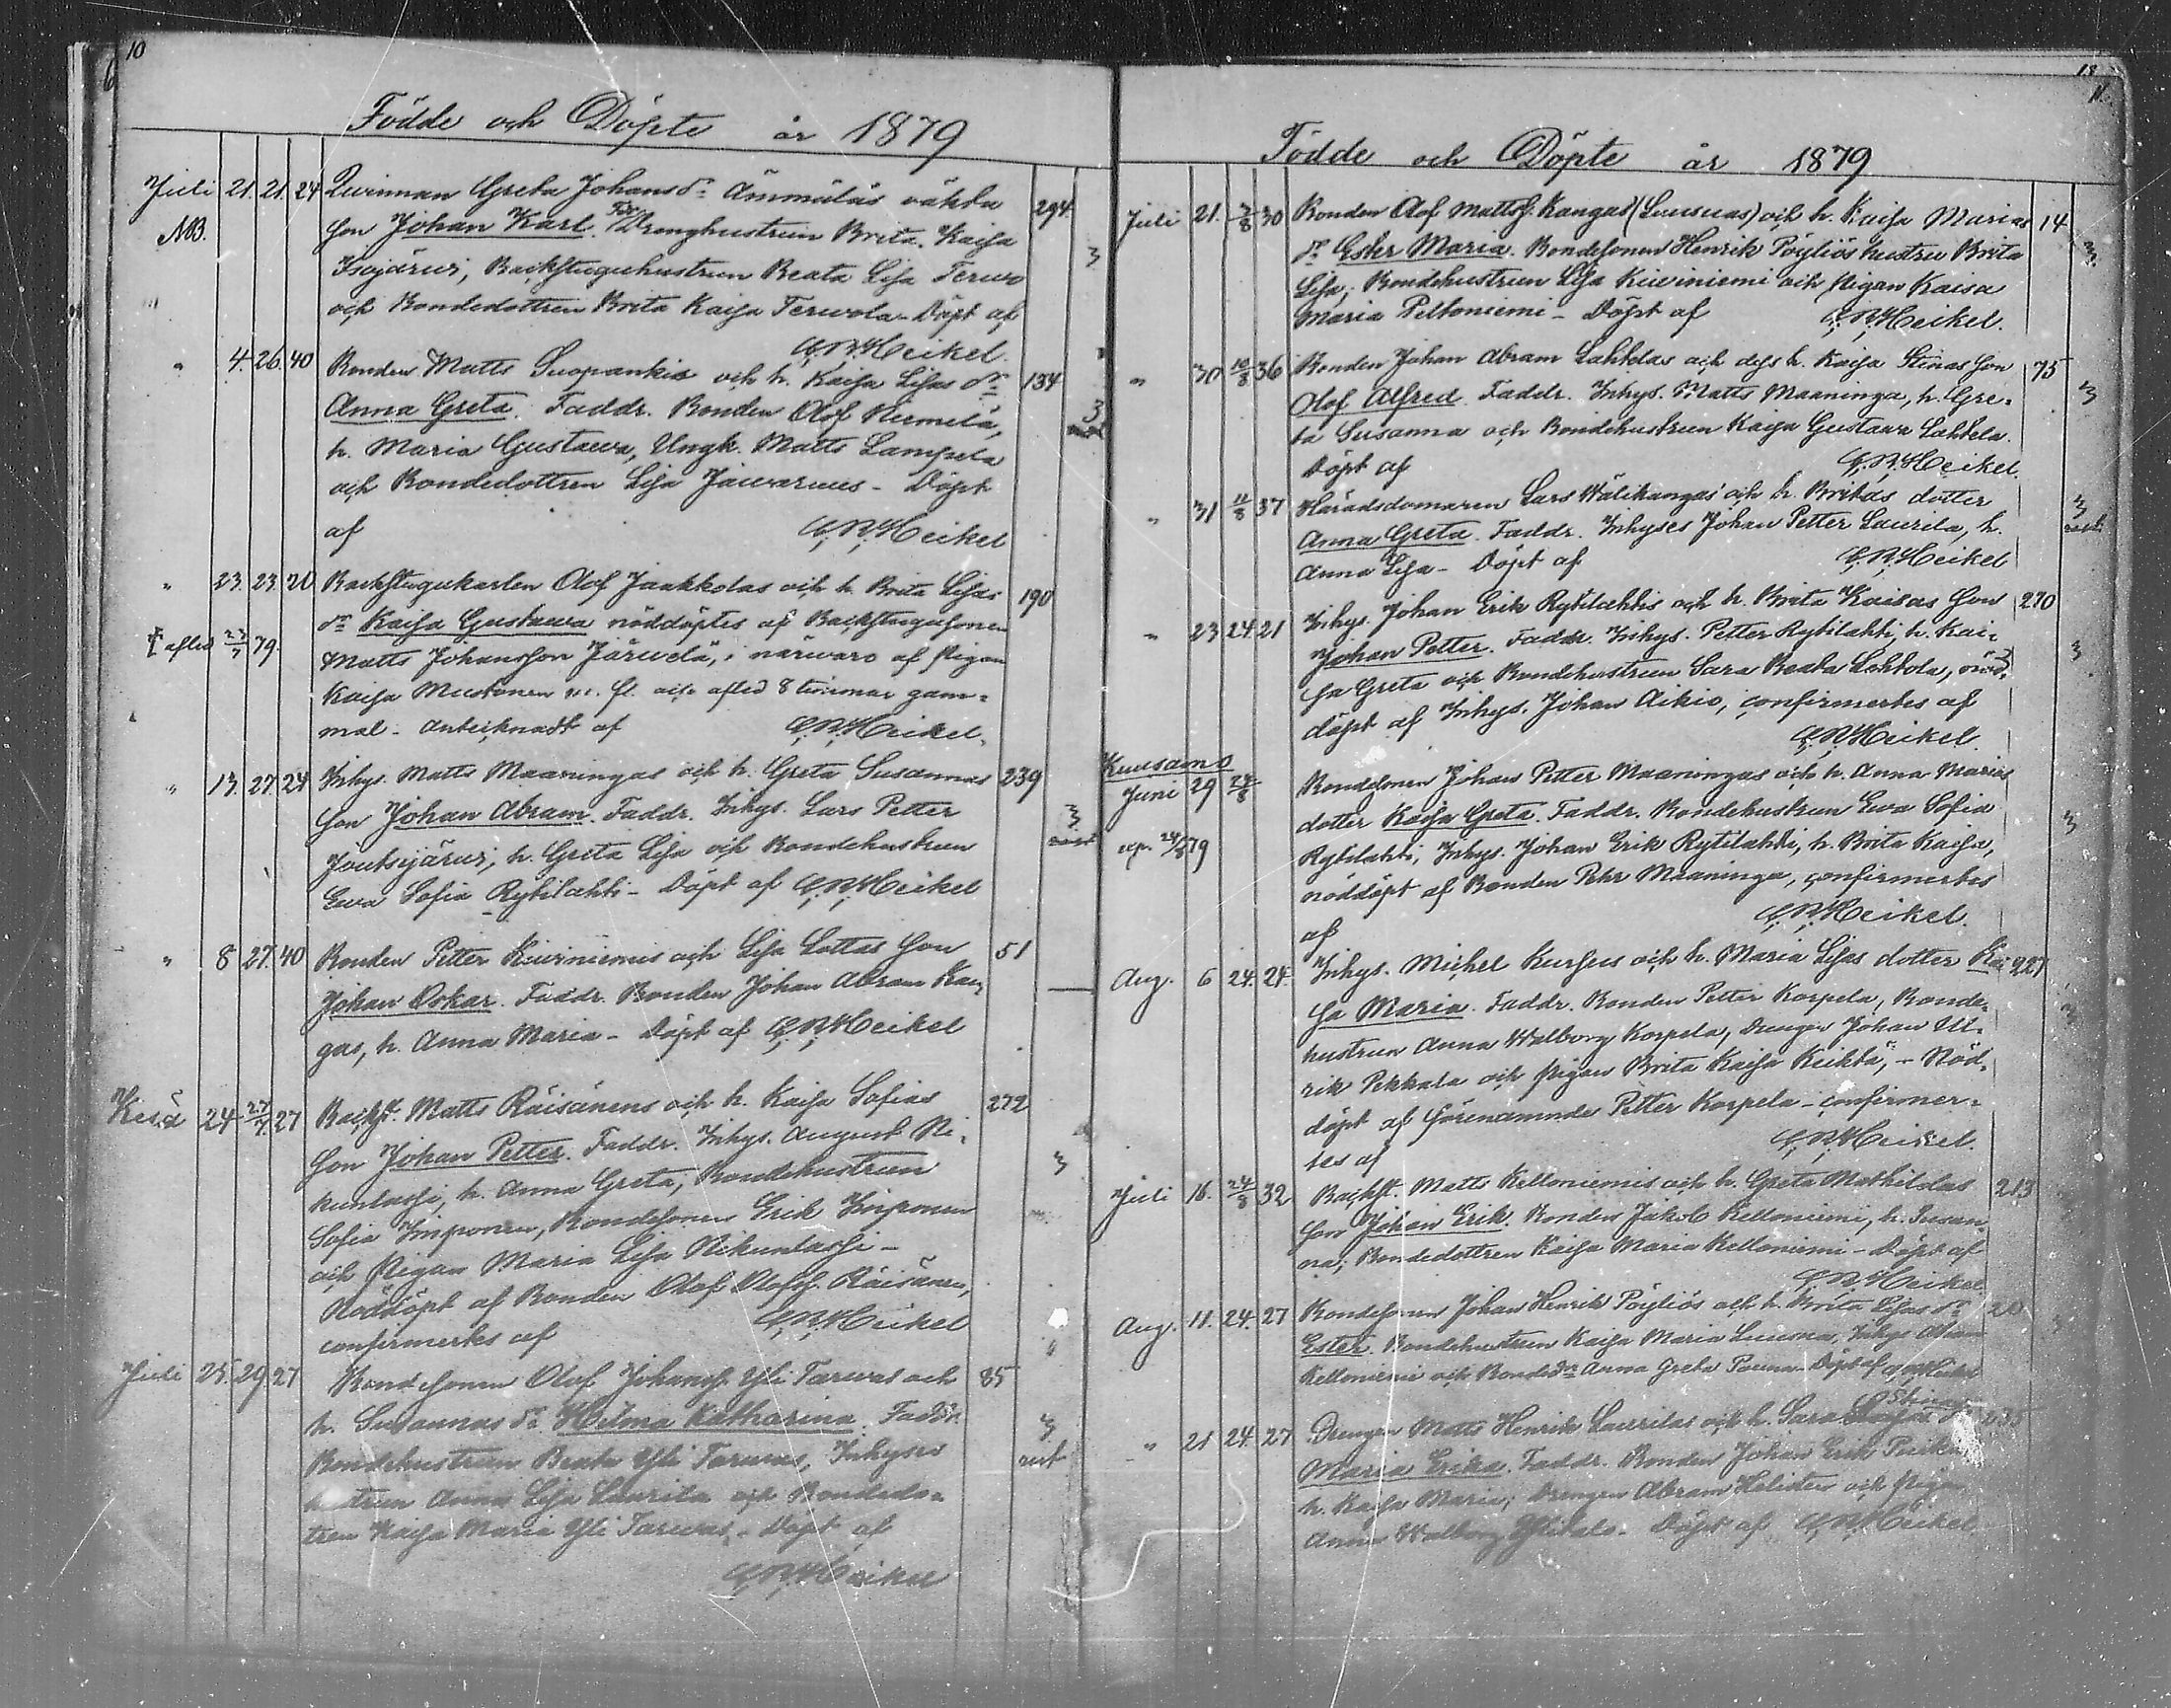 10
Födde och Döpte år 1879
Juli 21. 21. 24 Quinnan Greta Johansdr Ämmäläs oäkta 294
NB. son Johan Karl. Fdr Drenghustrun Brita Kaisa
Isojärwi, Backstuguhustrun Beata Lisa Terwo 3
och Bondedottren Brita Kaisa Terwola - Döpt af
C. R. Heikel.
" 4. 26. 40 Bonden Matts Suopankis och h. Kaisa Lisas dr 134
Anna Greta. Faddr. Bonden Olof Niemelä, 3
h. Maria Gustawa, Ungk. Matts Lampela
och Bondedottren Lisa Jawarus - Döpt
af C. R. Heikel
" 23. 23. 20 Backstugukarlen Olof Jaakkolas och h. Brita Lisas 190
dr Kaisa Gustawa nöddöptes af Backstugusonen
† afled 23/7 79. Matts Johansson Järwelä, i närwaro af pigan
Kaisa Mustonen m. fl. och afled 8 timmar gam-
mal - Antecknadt af C. R. Heikel.
" 13. 27. 24 Inhys. Matts Maaningas och h. Greta Susannas 239
son Johan Abram. Faddr. Inhys. Lars Petter 3
Joutsijärwi, h. Greta Lisa och Bondehustrun
Ewa Sofia Rytilahti - Döpt af C. R. Heikel
" 8 27. 40 Bonden Petter Kiwiniemis och Lisa Lottas son 51
Johan Oskar. Faddr. Bonden Johan Abram Kan-
gas, h. Anna Maria - Döpt af C. R. Heikel
Kesä 24 27/7 27 Backst. Matts Räisänens och h. Kaisa Sofias 272
son Johan Petter. Faddr. Inhys. August Ni-
kunlassi, h. Anna Greta, Bondehustrun 3
Sofia Imponen, Bondesonen Erik Imponen
och Pigan Maria Lisa Nikunlassi -
Nöddöpt af Bonden Olof Olofss. Räisänen,
confirmertes af C. R. Heikel
Juli 25. 29 27 Bondesonen Olof Johanss. Yli Tarwas och 85
h. Susannas dr Hilma Katharina. Faddr. 3
Bondehustrun Beata Yli Tarwas, Inhyses
hustrun Anna Lisa Laurila och Bondedo-
tren Kaisa Maria Yli Tarwas - Döpt af
C. R. Heikel
18
11.
Födde och Döpte år 1879
Juli 21. 3/8 30 Bonden Olof Mattss. Kangas (Luusuas) och h. Kaisa Marias 14
dr Ester Maria. Bondesonen Henrik Pöyliös hustru Brita 3
Lisa, Bondehustrun Lisa Kiwiniemi och pigan Kaisa
Maria Peltoniemi - Döpt af C. R. Heikel.
" 30 10/8 36 Bonden Johan Abram Lahtelas och dess h. Kaisa Stinas son 75
Olof Alfred. Faddr. Inhys. Matts Maaninga, h. Gre- 3
ta Susanna och Bondehustrun Kaisa Gustawa Lahtela.
Döpt af C. R. Heikel.
" 31 11/8 37 Häradsdomaren Lars Wälikangas och h. Britas dotter 3
Anna Greta. Faddr. Inhyses Johan Petter Laurila, h.
Anna Lisa - Döpt af C. R. Heikel
" 23 24. 21 Inhys. Johan Erik Rytilahtis och h. Brita Kaisas son 270
Johan Petter. Faddr. Inhys. Petter Rytilahti, h. Kai- 3
sa Greta och Bondehustrun Sara Beata Lahtela, nöd-
döpt af Inhys. Johan Aikio, confirmertes af
C. R. Heikel.
Kuusamo
Juni 29 24/8 Bondesonen Johan Petter Maaningas och h. Anna Marias
dotter Kaisa Greta. Faddr. Bondehustrun Ewa Sofia 3
exp. 24/8 79 Rytilahti, Inhys. Johan Erik Rytilahti, h. Brita Kaisa,
nöddöpt af Bonden Pehr Maaninga, confirmertes
af C. R. Heikel.
Aug. 6 24. 24. Inhys. Michel Kursus och h. Maria Lisas dotter Kai- 227
sa Maria. Faddr. Bonden Petter Korpela, Bonde- 3
hustrun Anna Walborg Korpela, Drengen Johan Ul-
rik Pekkala och Pigan Brita Kaisa Keihtä, - Nöd-
döpt af förenämnde Petter Korpela - confirmer-
tes af C. R. Heikel.
Juli 16. 24/8 32 Backst. Matts Kelloniemis och h. Greta Mathildas 213
son Johan Erik. Bonden Jakob Kelloniemi, h. Susan-
na, Bondedottren Kaisa Maria Kelloniemi - Döpt af
C. R. Heikel
Aug. 11. 24. 27 Bondesonen Johan Henrik Pöyliös och h. Brita Lisas dr 20
Ester. Bondehustrun Kaisa Maria Luusua, Inhys. Abram 3
Kelloniemi och Bondedr Anna Greta Pauna - Döpt af C. R. Heikel
Stinas
" 21 24. 27 Drengen Matts Henrik Laurilas och h. Sara Kaisas dr 235
Maria Erika. Faddr. Bonden Johan Erik
h. Kaisa Maria, Drengen Abram Halisten och pigan
Anna Walborg - Döpt af C. R. Heikel.